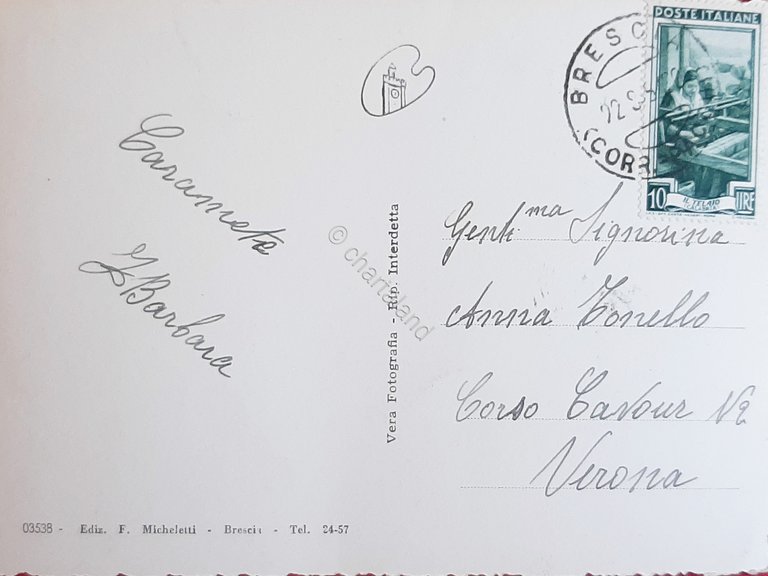 POSTE ITALIANE
BRESCIA
22
(CORR
10 LIRE
IL TELAIO
CALABRIA
Caramente
Barbara
Vera Fotografia - Rip. Interdetta
© chartaland
Gent.ma Signorina
Anna Tonello
Corso Cavour
Verona
03538 - Ediz. F. Micheletti - Brescia - Tel. 24-57